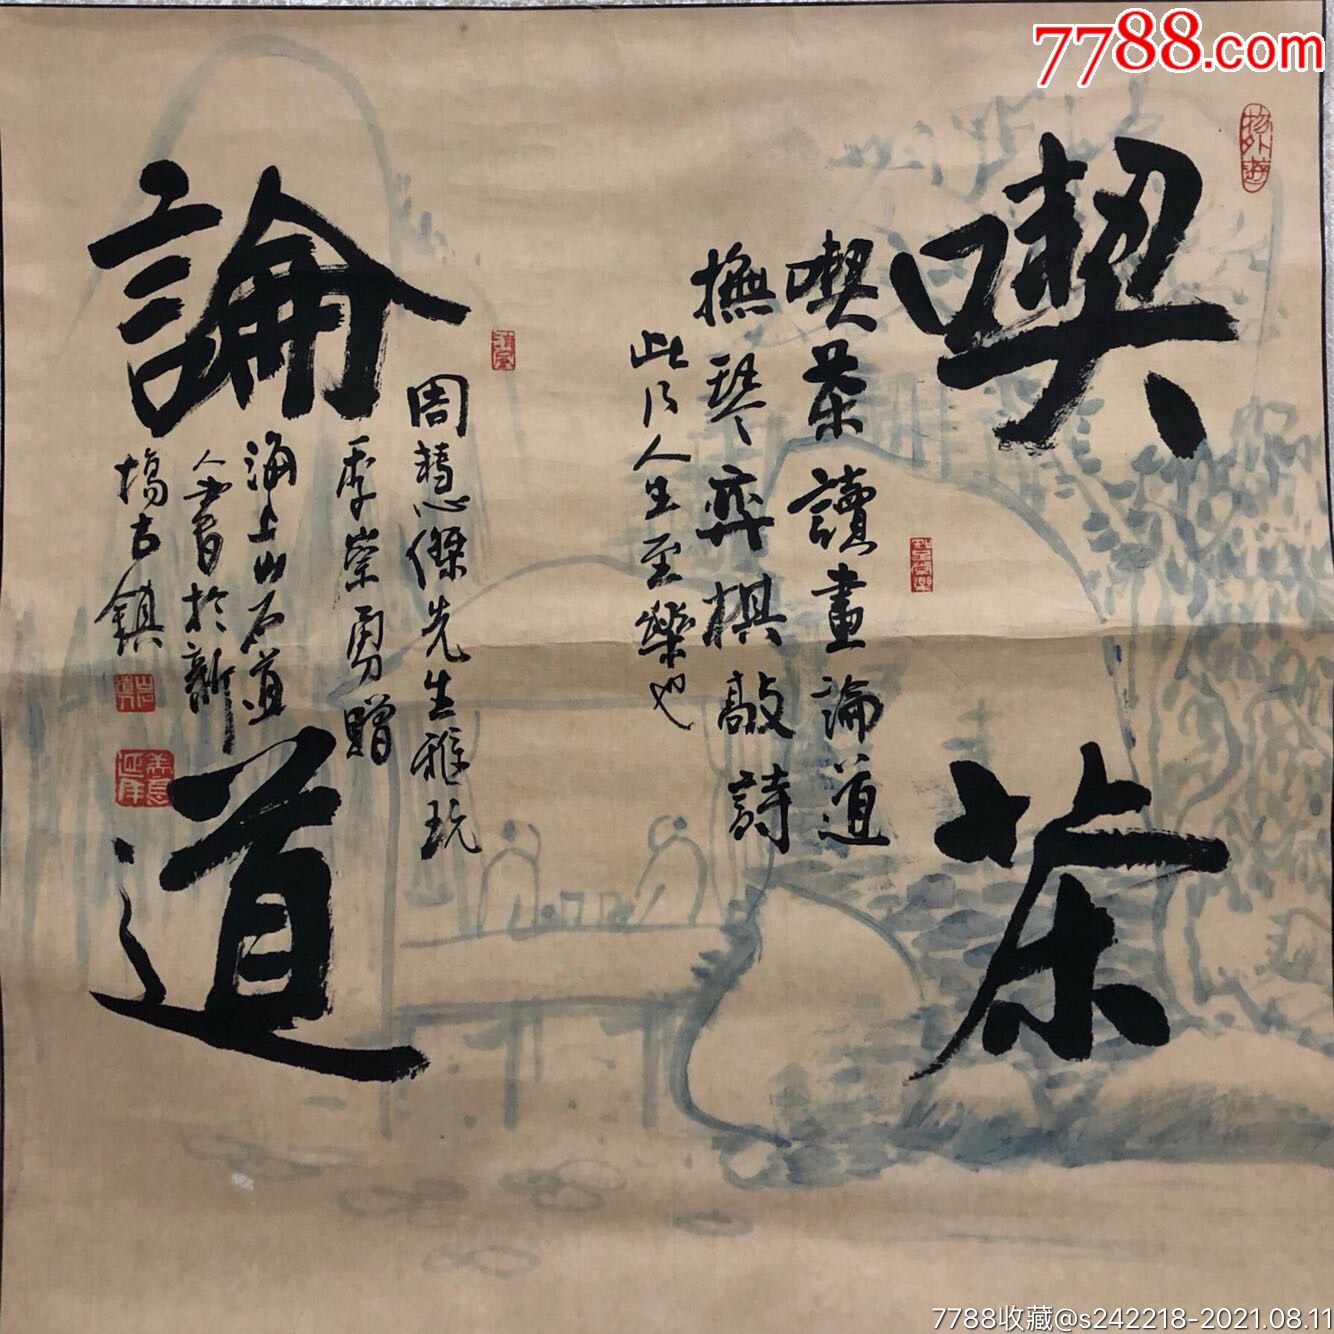 7788.com
物外趣
喫茶
喫茶讀畫論道
撫琴弈棋敲詩
此乃人生至樂也
論道
周慧傑先生雅玩
季崇勇贈
海上山石道
人書於新
場古鎮
7788收藏@s242218-2021.08.11